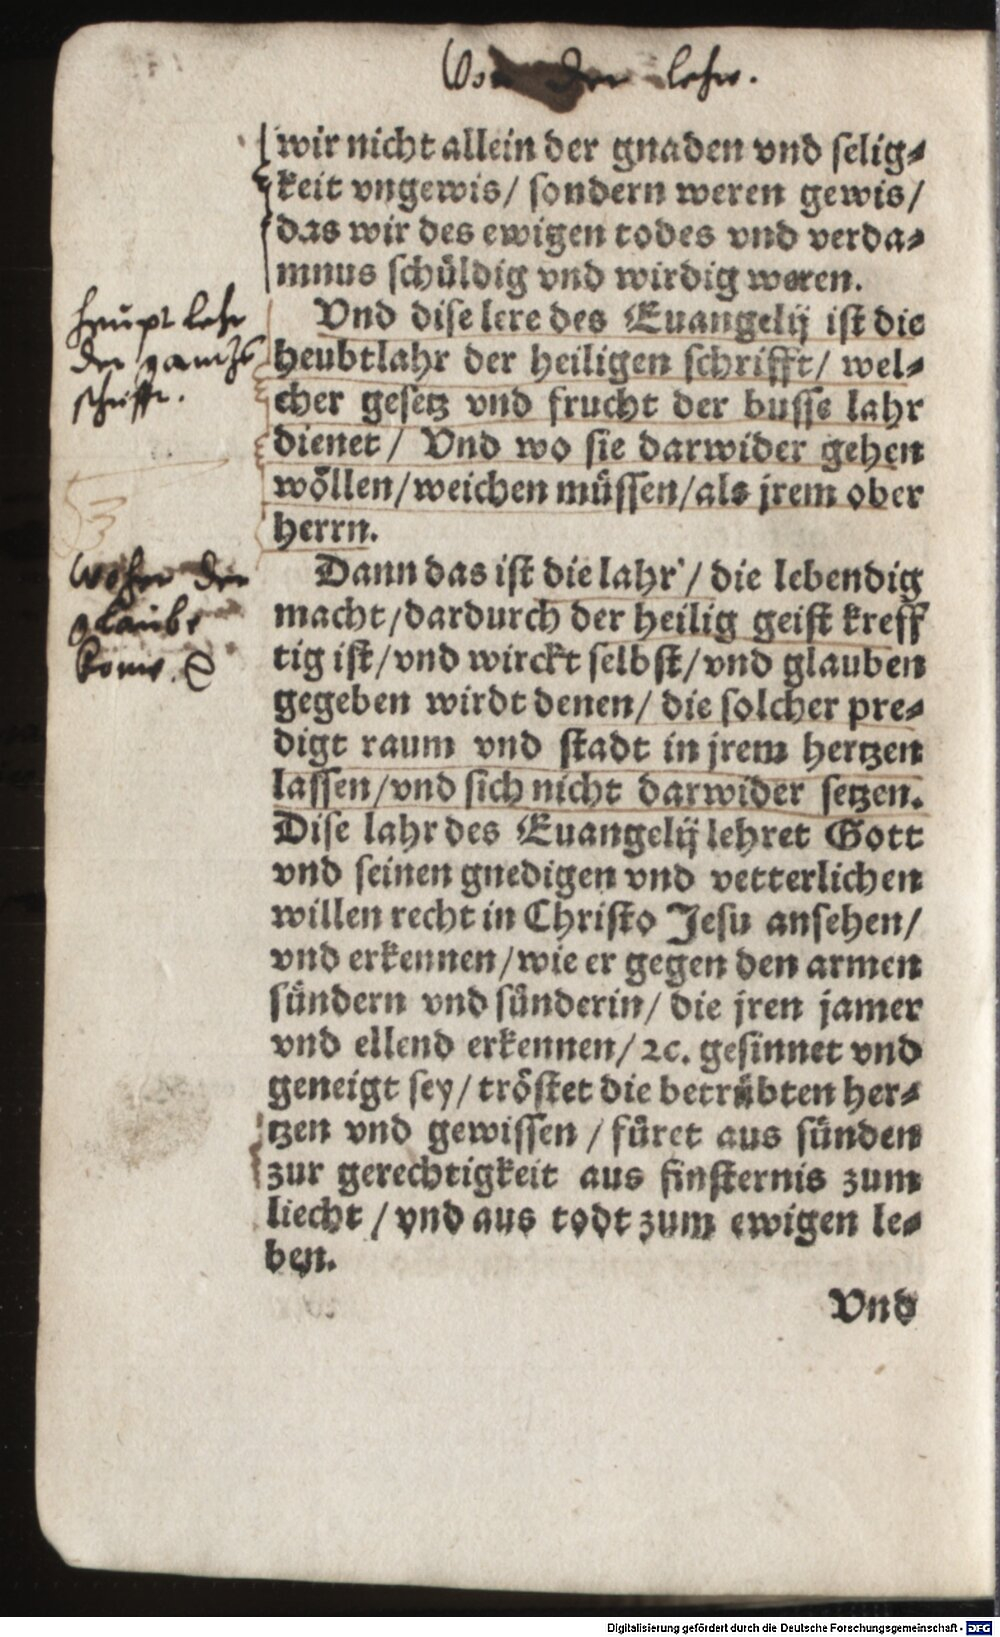 Von der lehr.
wir nicht allein der gnaden vnd selig⸗
keit vngewis/ sondern weren gewis/
das wir des ewigen todes vnd verda⸗
mnus schüldig vnd wirdig weren.
haupt lehr
der gantzē
schrifft.
Vnd dise lere des Euangelij ist die
heubtlahr der heiligen schrifft/ wel⸗
cher gesetz vnd frucht der busse lahr
dienet/ Vnd wo sie darwider gehen
wöllen/weichen müssen/als jrem ober
herrn.
Woher der
glaube
Dann das ist die lahr/ die lebendig
macht/dardurch der heilig geist kreff
tig ist/vnd wirckt selbst/vnd glauben
gegeben wirdt denen/ die solcher pre⸗
digt raum vnd stadt in jrem hertzen
lassen/vnd sich nicht darwider setzen.
Dise lahr des Euangelij lehret Gott
vnd seinen gnedigen vnd vetterlichen
willen recht in Christo Jesu ansehen/
vnd erkennen/wie er gegen den armen
sündern vnd sünderin/ die jren jamer
vnd ellend erkennen/ ꝛc. gesinnet vnd
geneigt sey/ tröstet die betrübten her⸗
tzen vnd gewissen/ füret aus sünden
zur gerechtigkeit aus finsternis zum
liecht/ vnd aus todt zum ewigen le⸗
ben.
Vnd
Digitalisierung gefördert durch die Deutsche Forschungsgemeinschaft - DFG